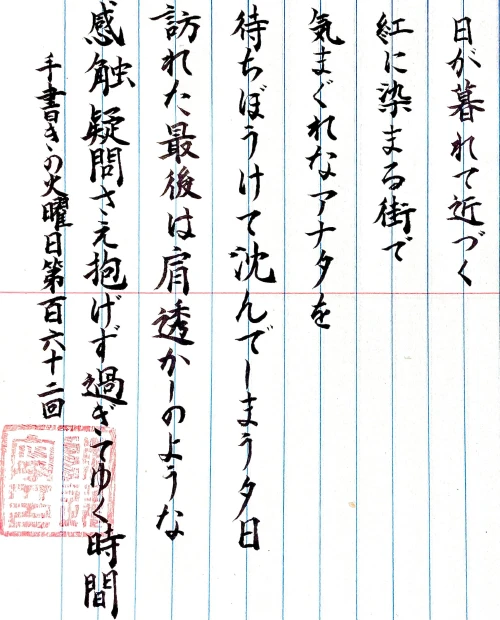 日が暮れて近づく
紅に染まる街で
気まぐれなアナタを
待ちぼうけて沈んでしまう夕日
訪れた最後は肩透かしのような
感触疑問さえ抱げず過ぎてゆく時間
手書きの火曜日第百六十二回